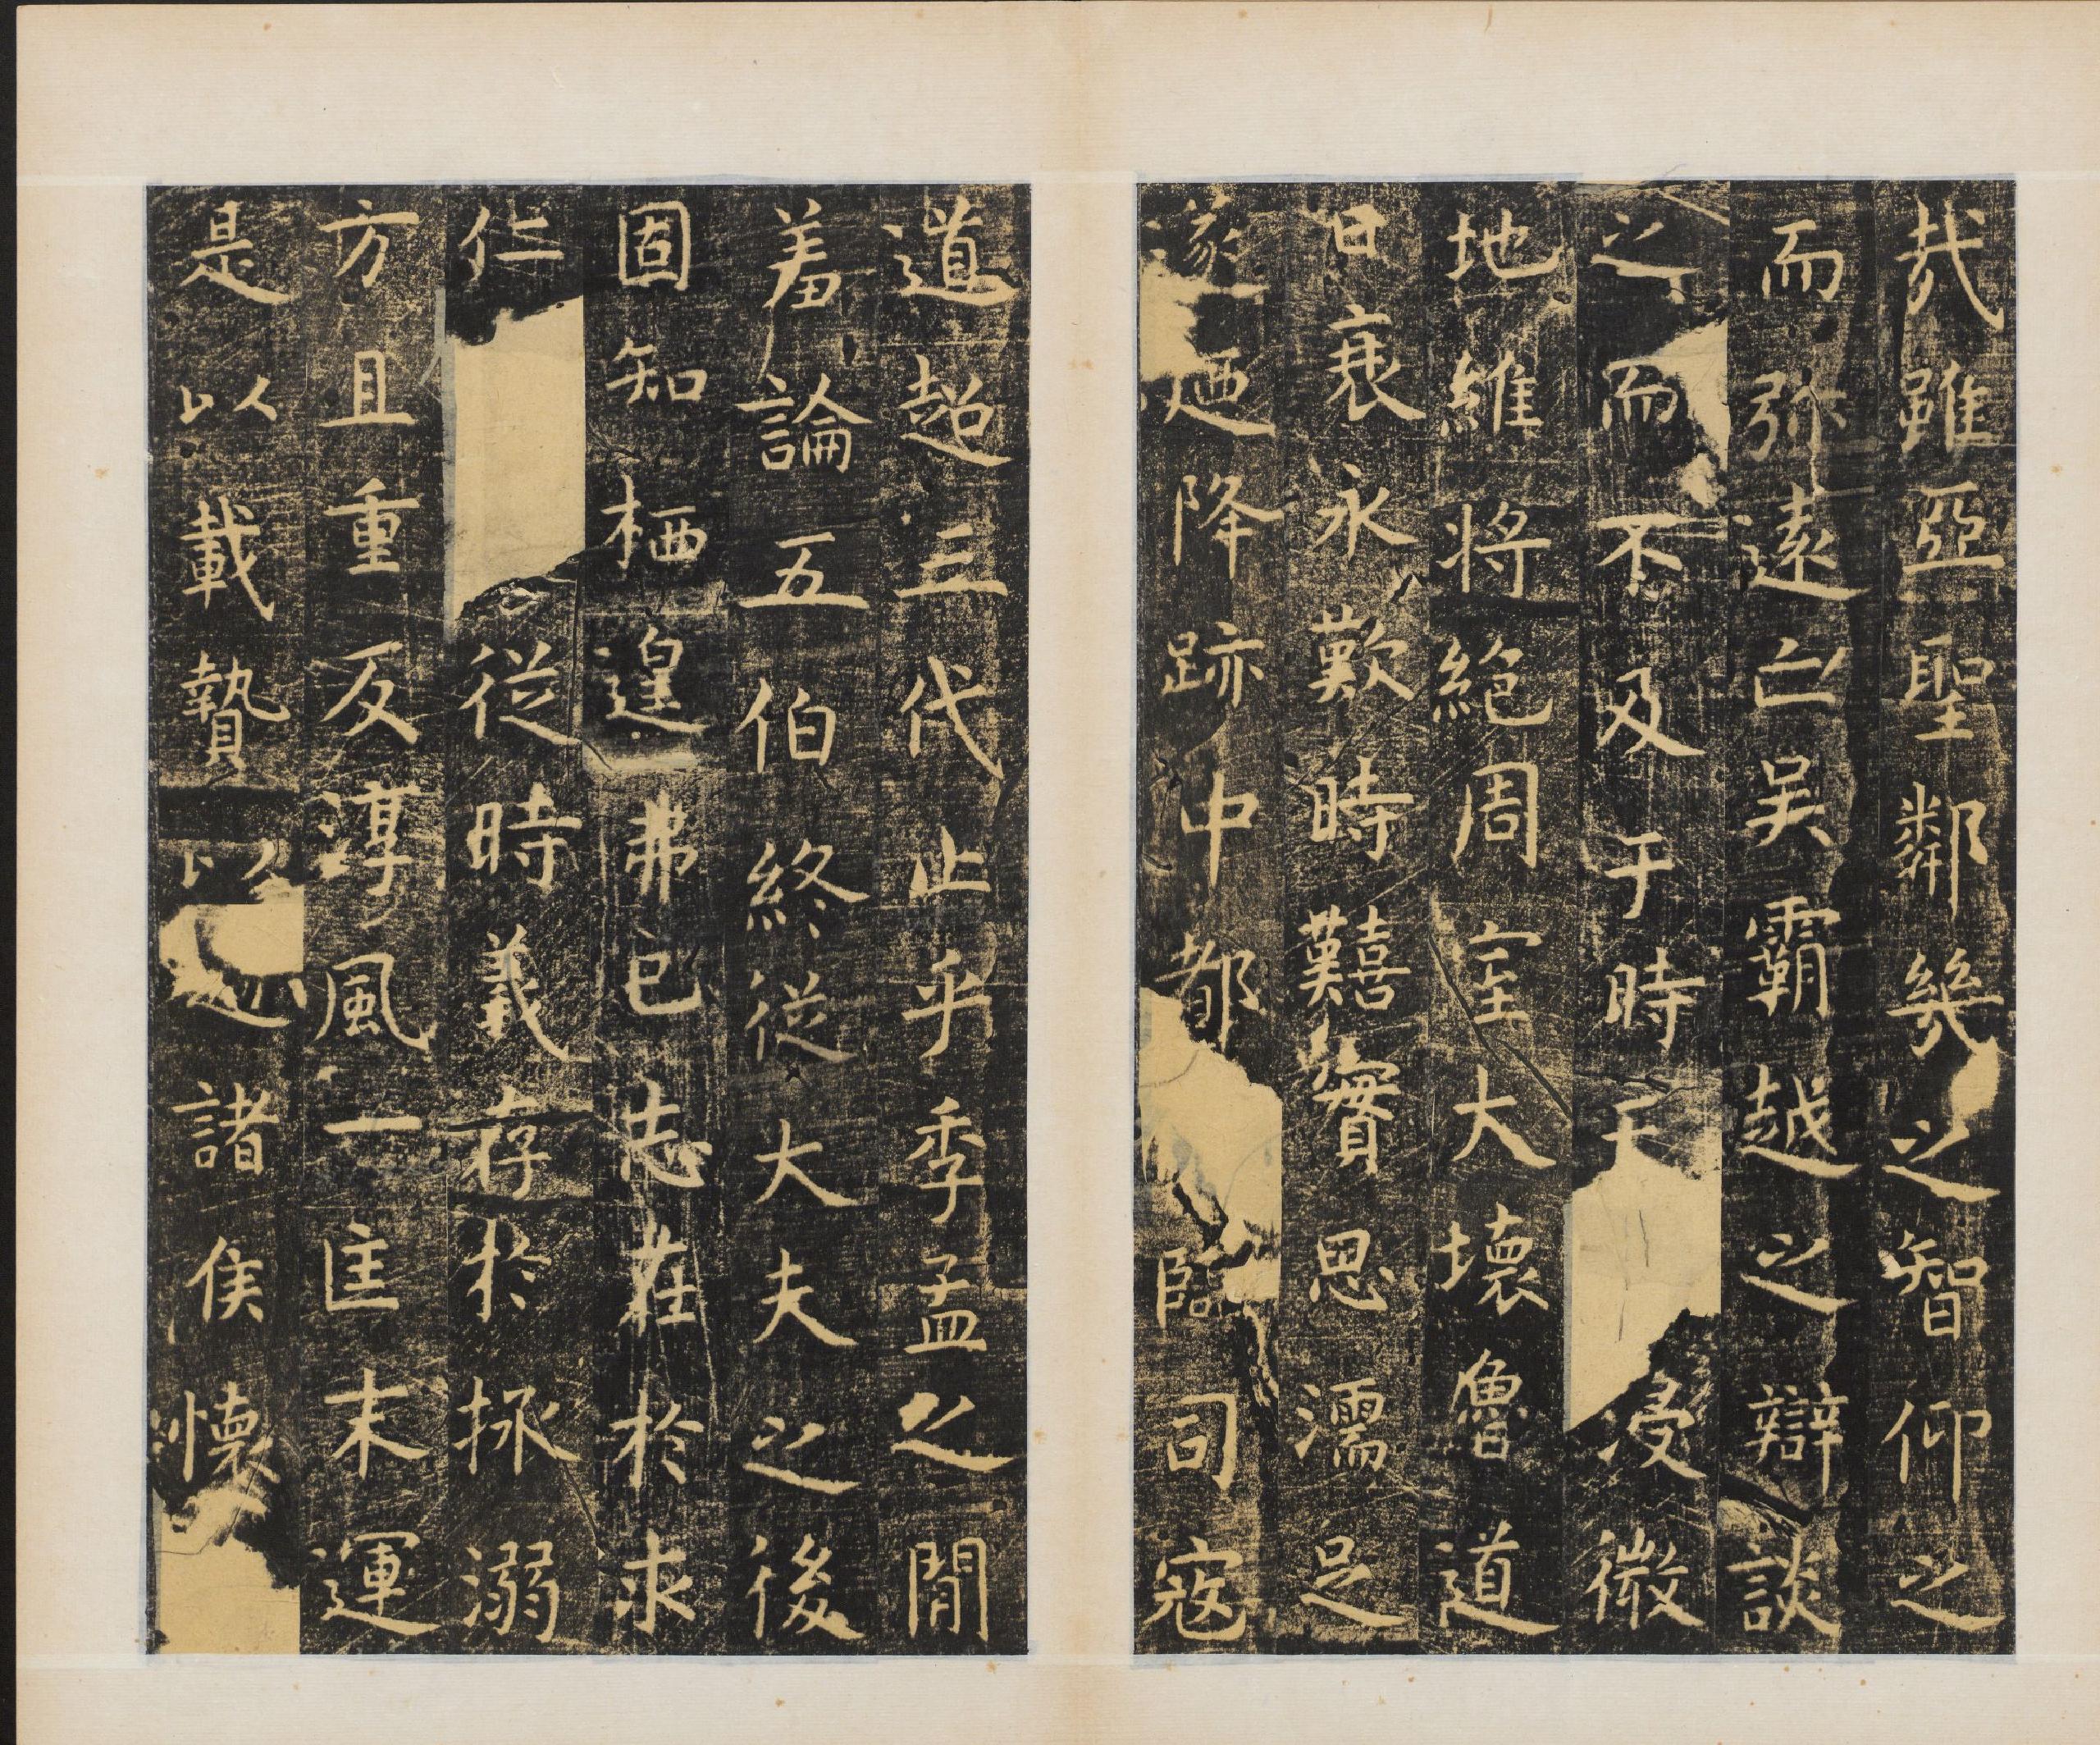 哉雖亞聖鄰幾之智仰之
而弥遠亡吴霸越之辯談
之而不及于時于浸微
地維将絶周室大壞魯道
日衰永歎時囏寔思濡足
遂迺降跡中都臨司寇
道超三代止乎季孟之閒
羞論五伯終従大夫之後
固知栖遑弗已志在於求
仁従時義存於拯溺
方且重反淳風一匡末運
是以載贄以諸侯懷